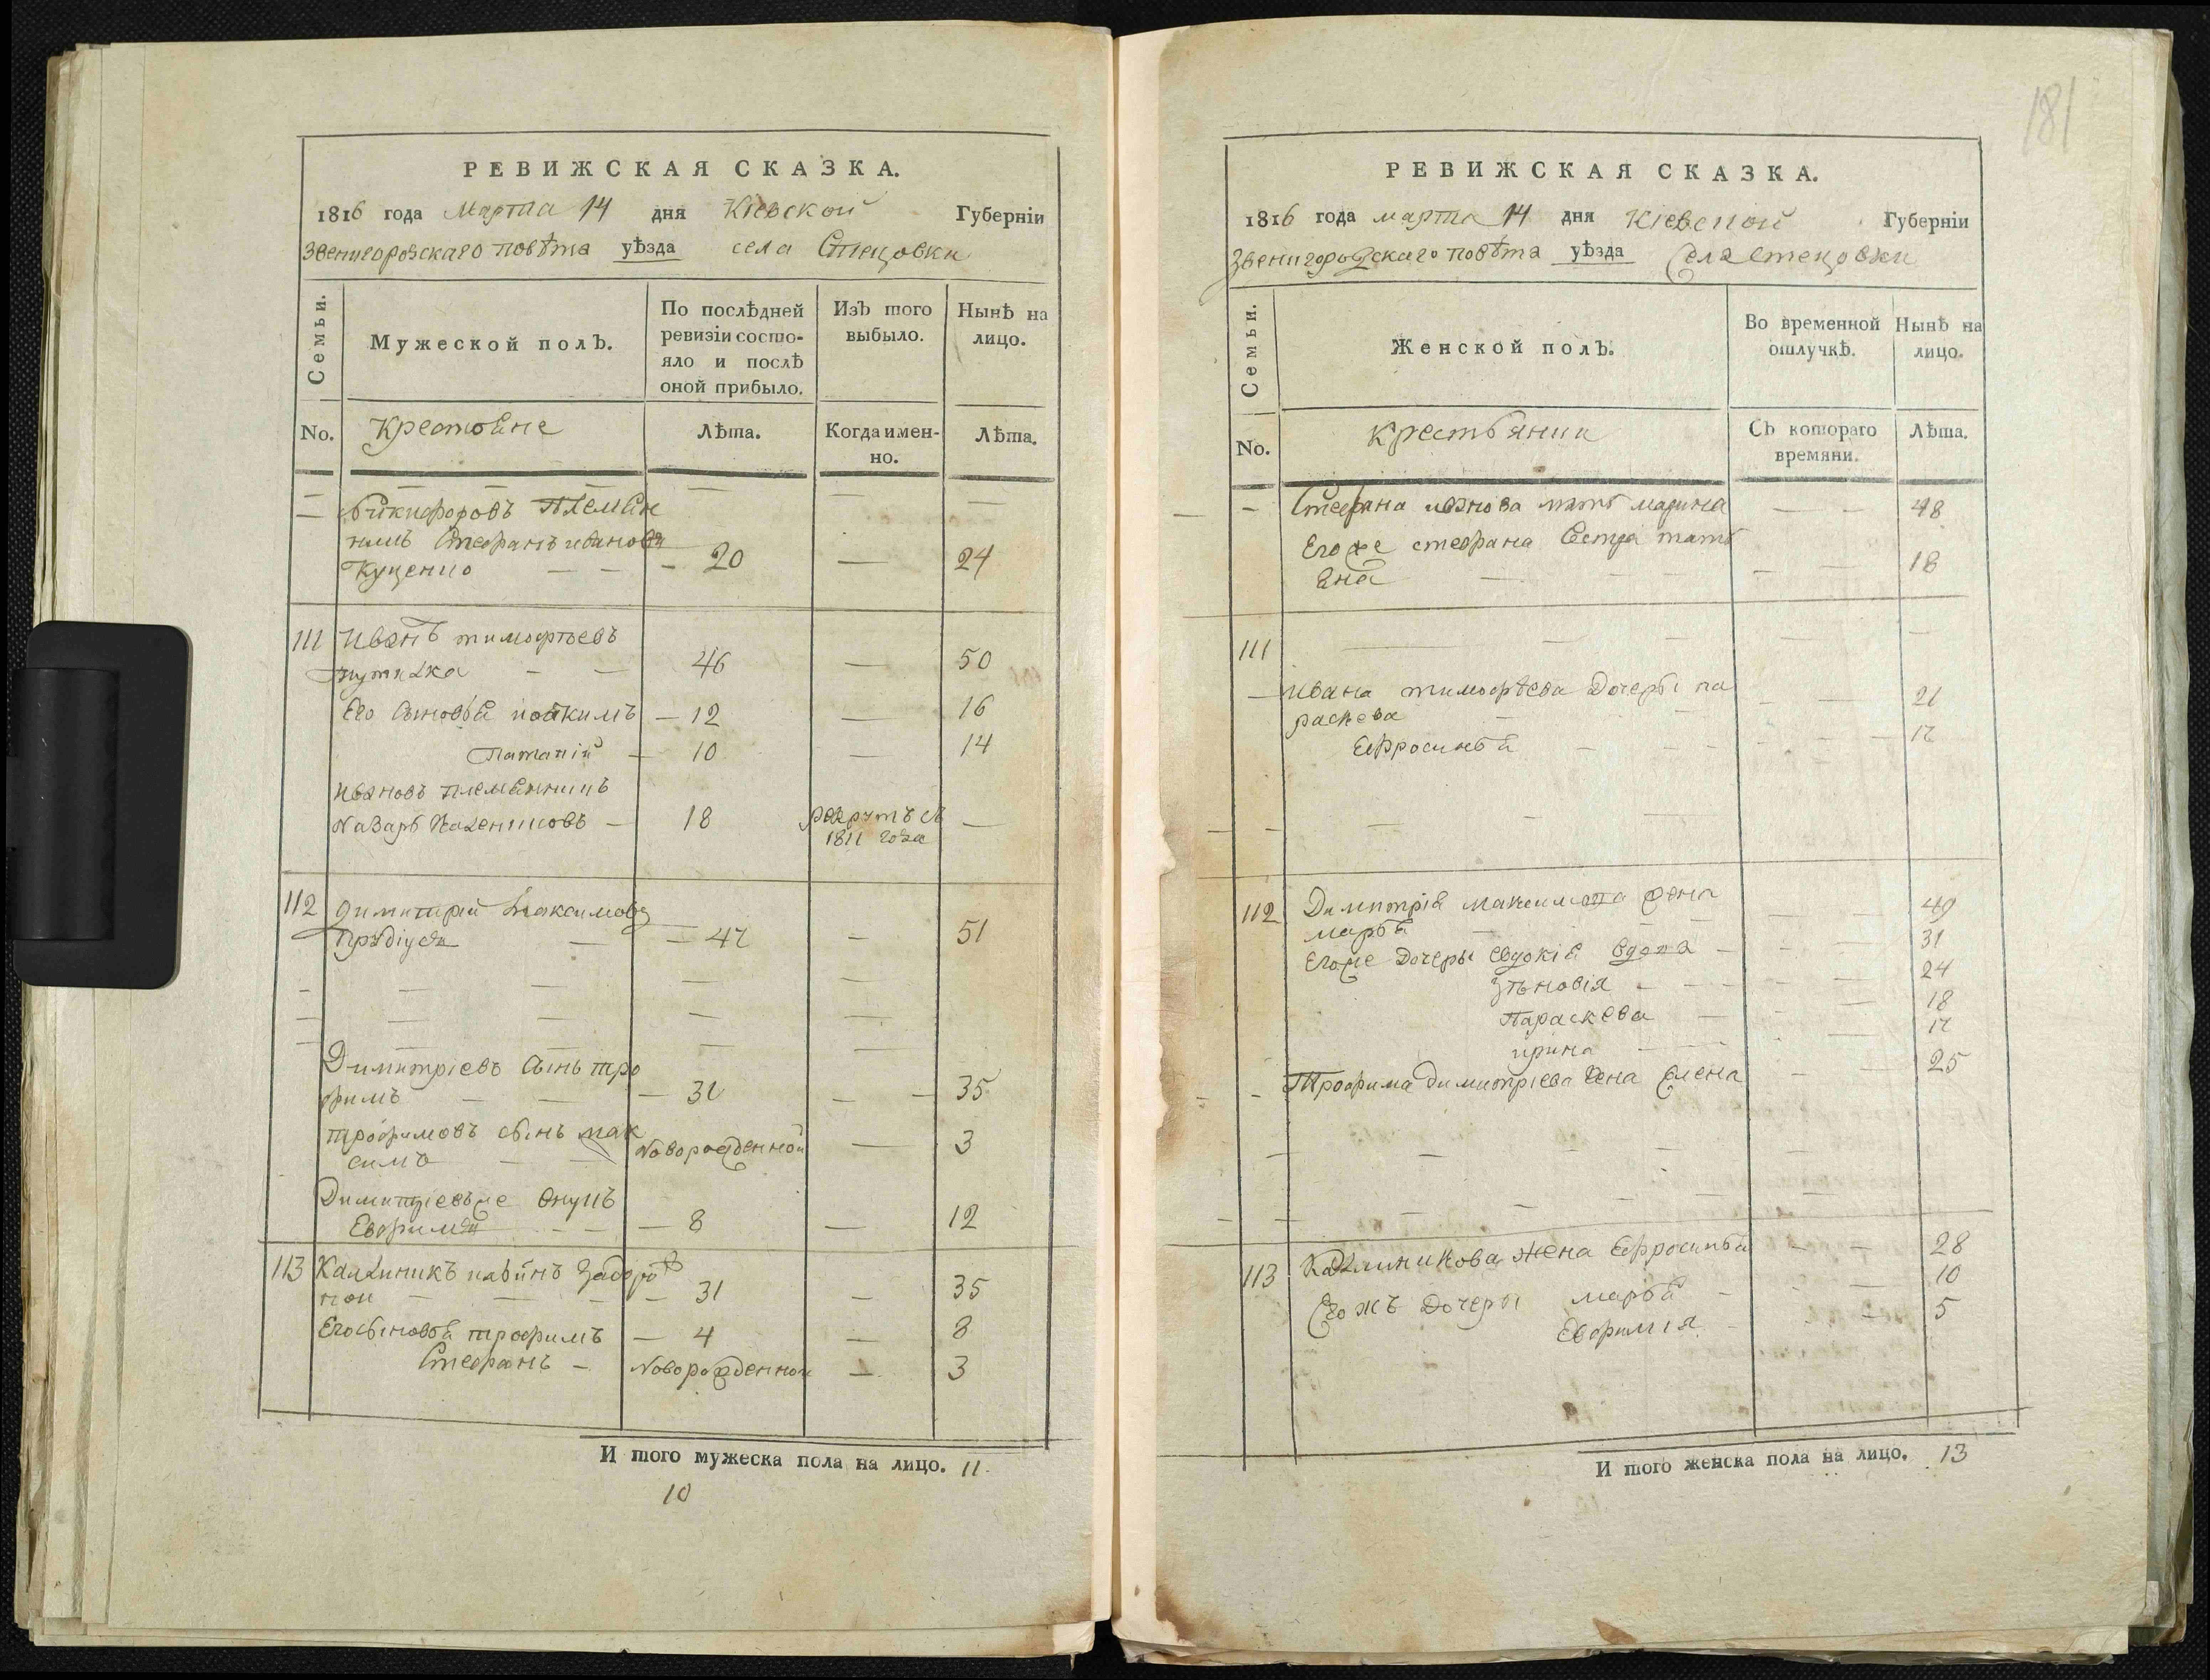 РЕВИЖСКАЯ СКАЗКА.
1816 года Марта 14 дня Кіевской Губерніи
Звенигородскаго повѣта уѣзда села Стецовки
Семьи.
Мужеской полЪ.
По послѣдней
ревизіи состо-
яло и послѣ
оной прибыло.
ИзЪ того
выбыло.
Нынѣ на
лицо.
No.
Крестьяне
Лѣта.
Когда имен-
но.
Лѣта.
Никифоровъ племян
никъ Стефанъ Ивановъ
Куценко — — — 20 — 24
111 Иванъ тимофѣевъ
— — 46 — 50
Его сыновья иоакимъ — 12 — 16
Патапій — 10 — 14
Ивановъ племянникъ
Назаръ — 18 рекрутъ съ —
1811 года
112 Димитрій Максимовъ
— — 47 — 51
Димитріевъ сынъ тро
фимъ — — — 31 — — 35
трофимовъ сынъ мак
симъ — — Новорожденной — 3
Димитріевъже внукъ
Евфимій — — 8 — 12
113 Калиникъ
ной — — — — 31 — 35
Его сыновья трофимъ — 4 — 8
Стефанъ — Новорожденной — 3
И того мужеска пола на лицо. 11.
10
181
РЕВИЖСКАЯ СКАЗКА.
1816 года марта 14 дня Кіевской Губерніи
Звенигородскаго повѣта уѣзда Села Стецовки
Семьи.
Женской полЪ.
Во временной
отлучкѣ.
Нынѣ на
лицо.
No.
крестьянки
СЪ котораго
времяни.
Лѣта.
— Стефана иванова мать марина — — 48
Егоже стефана Сестра тать
яна — — — 18
111 — — — —
— Ивана тимофѣева Дочери па
раскева — — — 21
Ефросинья — — — 17
112 Димитрія максимова жена
марѳа — — — 49
Егоже Дочери Евдокія вдова — — 31
Зѣновія — — — 24
Параскева — — 18
ирина — — 17
— Трофима димитріева жена Елена — — 25
113 Калиникова жена Ефросинья — — 28
Его жъ Дочери марѳа — — 10
Евфимія — — 5
И того женска пола на лицо. 13